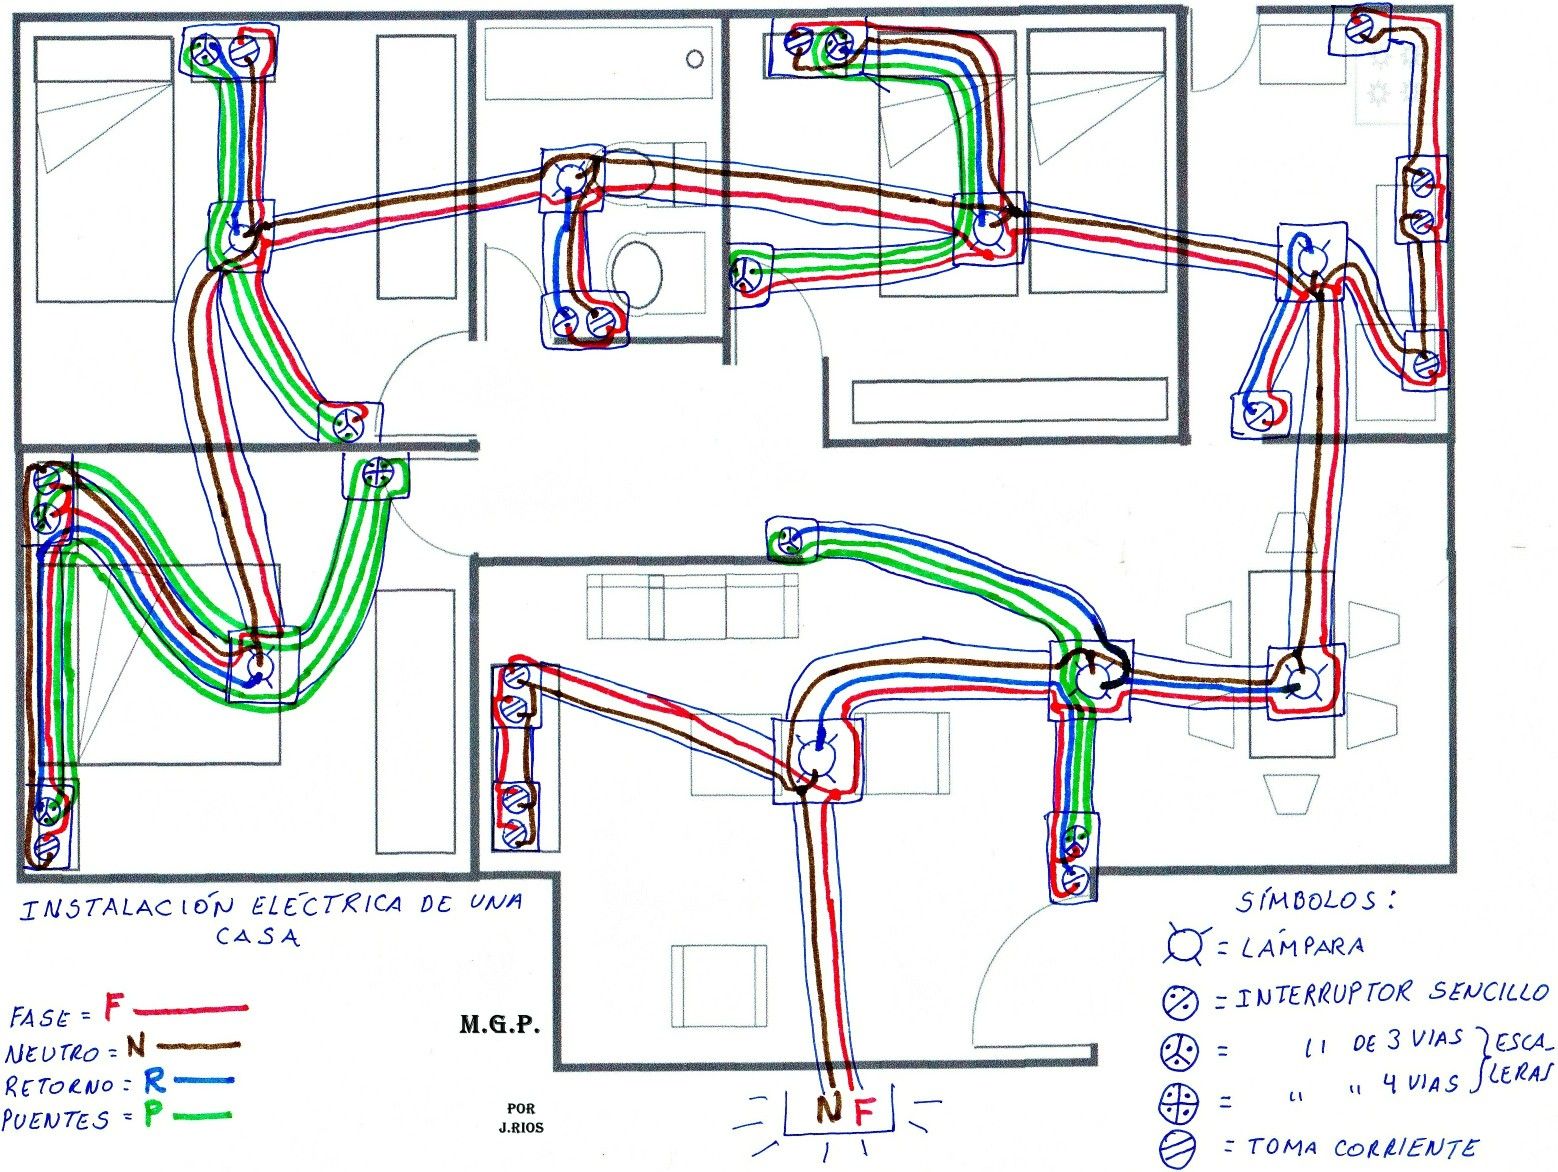 INSTALACIÓN ELÉCTRICA DE UNA
CASA
FASE = F
NEUTRO = N
RETORNO = R
PUENTES = P
M.G.P.
POR
J.RIOS
N F
SÍMBOLOS:
= LÁMPARA
= INTERRUPTOR SENCILLO
= " DE 3 VIAS } ESCA-
= " " 4 VIAS } LERAS
= TOMA CORRIENTE